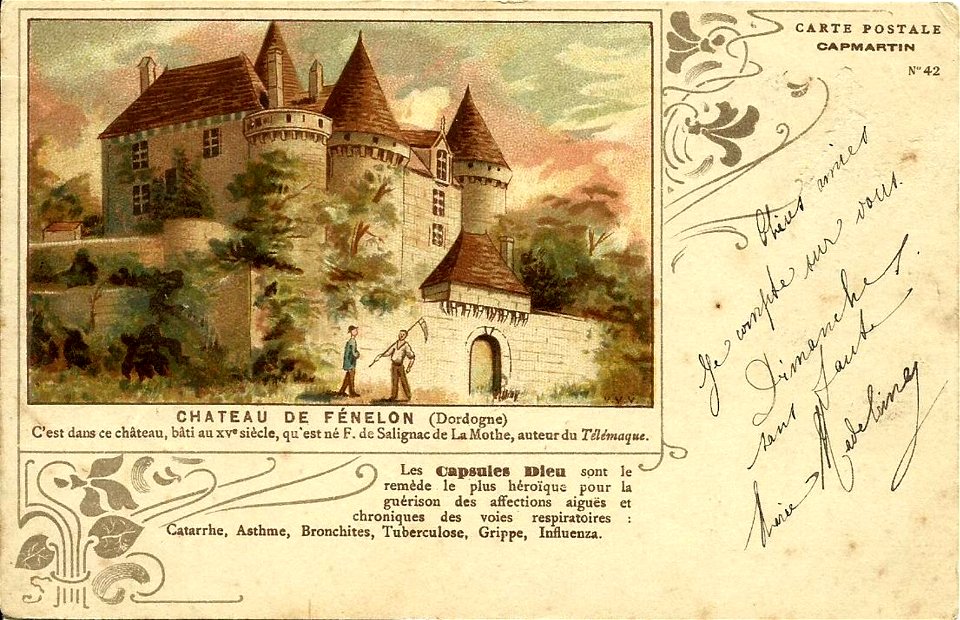 CARTE POSTALE
CAPMARTIN
N° 42
CHATEAU DE FÉNELON (Dordogne)
C'est dans ce château, bâti au XVᵉ siècle, qu'est né F. de Salignac de La Mothe, auteur du Télémaque.
Les Capsules Dieu sont le
remède le plus héroïque pour la
guérison des affections aiguës et
chroniques des voies respiratoires :
Catarrhe, Asthme, Bronchites, Tuberculose, Grippe, Influenza.
Chères amies
Je compte sur vous
Dimanche
sans faute